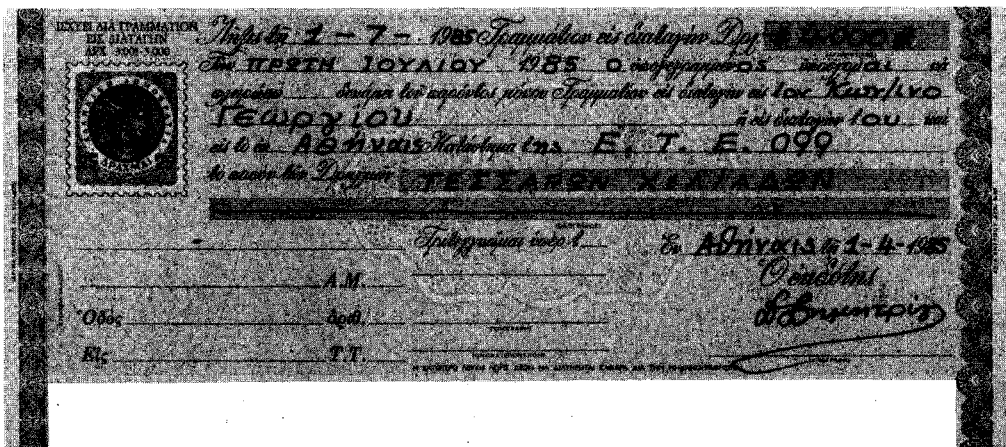 ΙΣΧΥΕΙ ΔΙΑ ΓΡΑΜΜΑΤΙΟΝ
ΕΙΣ ΔΙΑΤΑΓΗΝ
ΔΡΧ. 3.001-5.000
Λήξις τῇ 1 - 7 - 1985 Γραμμάτιον εἰς διαταγήν Δρχ.
Τὴν ΠΡΩΤΗ ΙΟΥΛΙΟΥ 1985 Ο ὑπογεγραμμένος ὑπόσχομαι νὰ
πληρώσω δυνάμει τοῦ παρόντος μόνου Γραμματίου εἰς διαταγήν εἰς τον Κων/ίνο
Γεωργίου ἢ εἰς διαταγήν του καὶ
εἰς τὸ ἐν Αθήναις Κατάστημα της Ε. Τ. Ε. 099
τὸ ποσὸν τῶν Δραχμῶν ΤΕΣΣΑΡΩΝ ΧΙΛΙΑΔΩΝ
ΔΡΑΧΜΑΙ
Τριτεγγυῶμαι ὑπὲρ τ
Ἐν Αθήναις τῇ 1-4-1985
Ὁ ἐκδότης
Α.Μ.
Ὁδὸς ἀριθ.
Εἰς Τ.Τ.